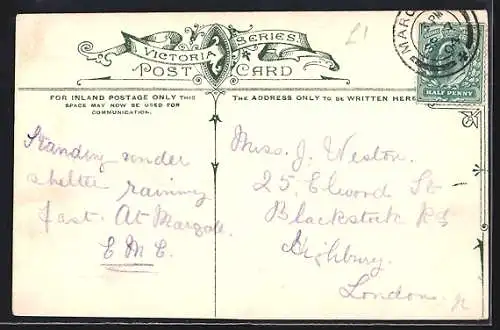 £1
VICTORIA SERIES.
POST CARD
FOR INLAND POSTAGE ONLY THIS
SPACE MAY NOW BE USED FOR
COMMUNICATION.
THE ADDRESS ONLY TO BE WRITTEN HERE
MARG
HALF PENNY
Standing under
shelter raining
fast. At Margate.
E M E
Miss. J. Weston.
25. Elwood St
Blackstock Rd
Highbury.
London. N